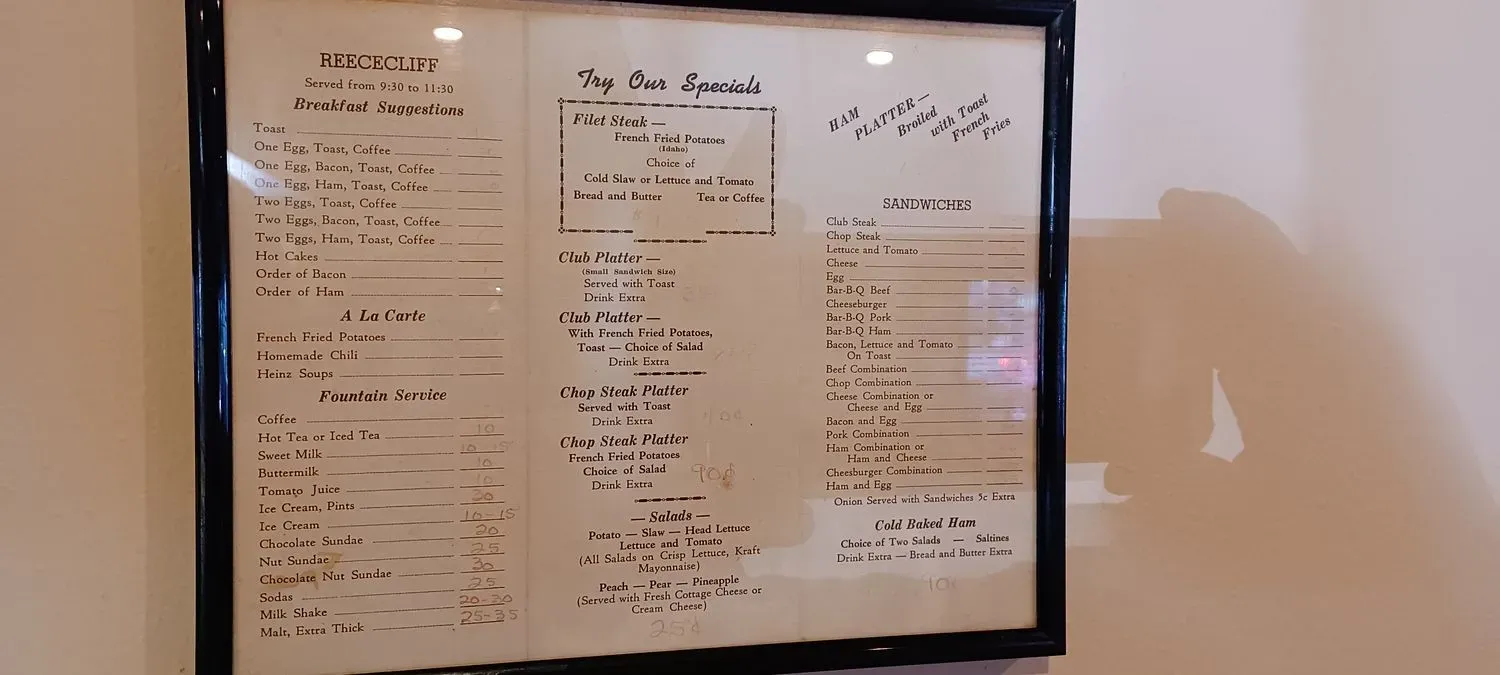 REECECLIFF
Served from 9:30 to 11:30
Breakfast Suggestions
Toast
One Egg, Toast, Coffee
One Egg, Bacon, Toast, Coffee
One Egg, Ham, Toast, Coffee
Two Eggs, Toast, Coffee
Two Eggs, Bacon, Toast, Coffee
Two Eggs, Ham, Toast, Coffee
Hot Cakes
Order of Bacon
Order of Ham
A La Carte
French Fried Potatoes
Homemade Chili
Heinz Soups
Fountain Service
Coffee
Hot Tea or Iced Tea 10
Sweet Milk 10-15
Buttermilk 10
Tomato Juice 10
Ice Cream, Pints 30
Ice Cream 10-15
Chocolate Sundae 20
Nut Sundae 25
Chocolate Nut Sundae 30
Sodas 25
Milk Shake 20-30
Malt, Extra Thick 25-35
Try Our Specials
Filet Steak —
French Fried Potatoes
(Idaho)
Choice of
Cold Slaw or Lettuce and Tomato
Bread and Butter Tea or Coffee
Club Platter —
(Small Sandwich Size)
Served with Toast
Drink Extra
Club Platter —
With French Fried Potatoes,
Toast — Choice of Salad
Drink Extra
Chop Steak Platter
Served with Toast
Drink Extra
Chop Steak Platter
French Fried Potatoes
Choice of Salad 90¢
Drink Extra
— Salads —
Potato — Slaw — Head Lettuce
Lettuce and Tomato
(All Salads on Crisp Lettuce, Kraft
Mayonnaise)
Peach — Pear — Pineapple
(Served with Fresh Cottage Cheese or
Cream Cheese)
25¢
HAM
PLATTER —
Broiled
with Toast
French
Fries
SANDWICHES
Club Steak
Chop Steak
Lettuce and Tomato
Cheese
Egg
Bar-B-Q Beef
Cheeseburger
Bar-B-Q Pork
Bar-B-Q Ham
Bacon, Lettuce and Tomato
On Toast
Beef Combination
Chop Combination
Cheese Combination or
Cheese and Egg
Bacon and Egg
Pork Combination
Ham Combination or
Ham and Cheese
Cheesburger Combination
Ham and Egg
Onion Served with Sandwiches 5c Extra
Cold Baked Ham
Choice of Two Salads — Saltines
Drink Extra — Bread and Butter Extra